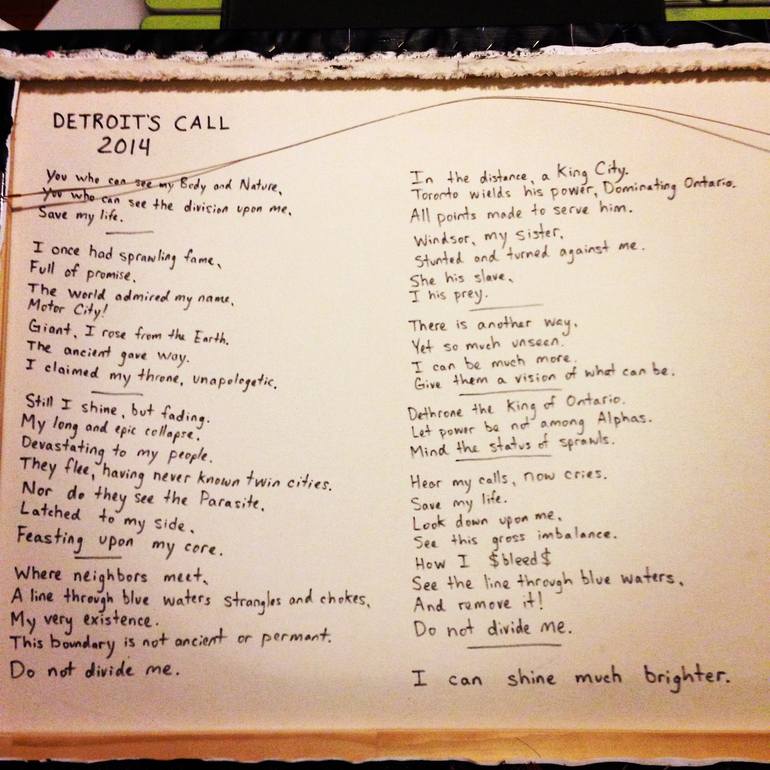 DETROIT'S CALL
2014
You who can see my Body and Nature,
You who can see the division upon me,
Save my life.
I once had sprawling fame,
Full of promise.
The World admired my name,
Motor City!
Giant, I rose from the Earth.
The ancient gave way.
I claimed my throne, unapologetic.
Still I shine, but fading.
My long and epic collapse.
Devastating to my people.
They flee, having never known twin cities.
Nor do they see the Parasite,
Latched to my side,
Feasting upon my core.
Where neighbors meet,
A line through blue waters strangles and chokes,
My very existence.
This boundary is not ancient or permant.
Do not divide me.
In the distance, a King City.
Toronto wields his power, Dominating Ontario.
All points made to serve him.
Windsor, my sister,
Stunted and turned against me.
She his slave,
I his prey.
There is another way,
Yet so much unseen.
I can be much more.
Give them a vision of what can be.
Dethrone the King of Ontario.
Let power be not among Alphas.
Mind the status of sprawls.
Hear my calls, now cries.
Save my life.
Look down upon me,
See this gross imbalance.
How I $bleed$
See the line through blue waters,
And remove it!
Do not divide me.
I can shine much brighter.